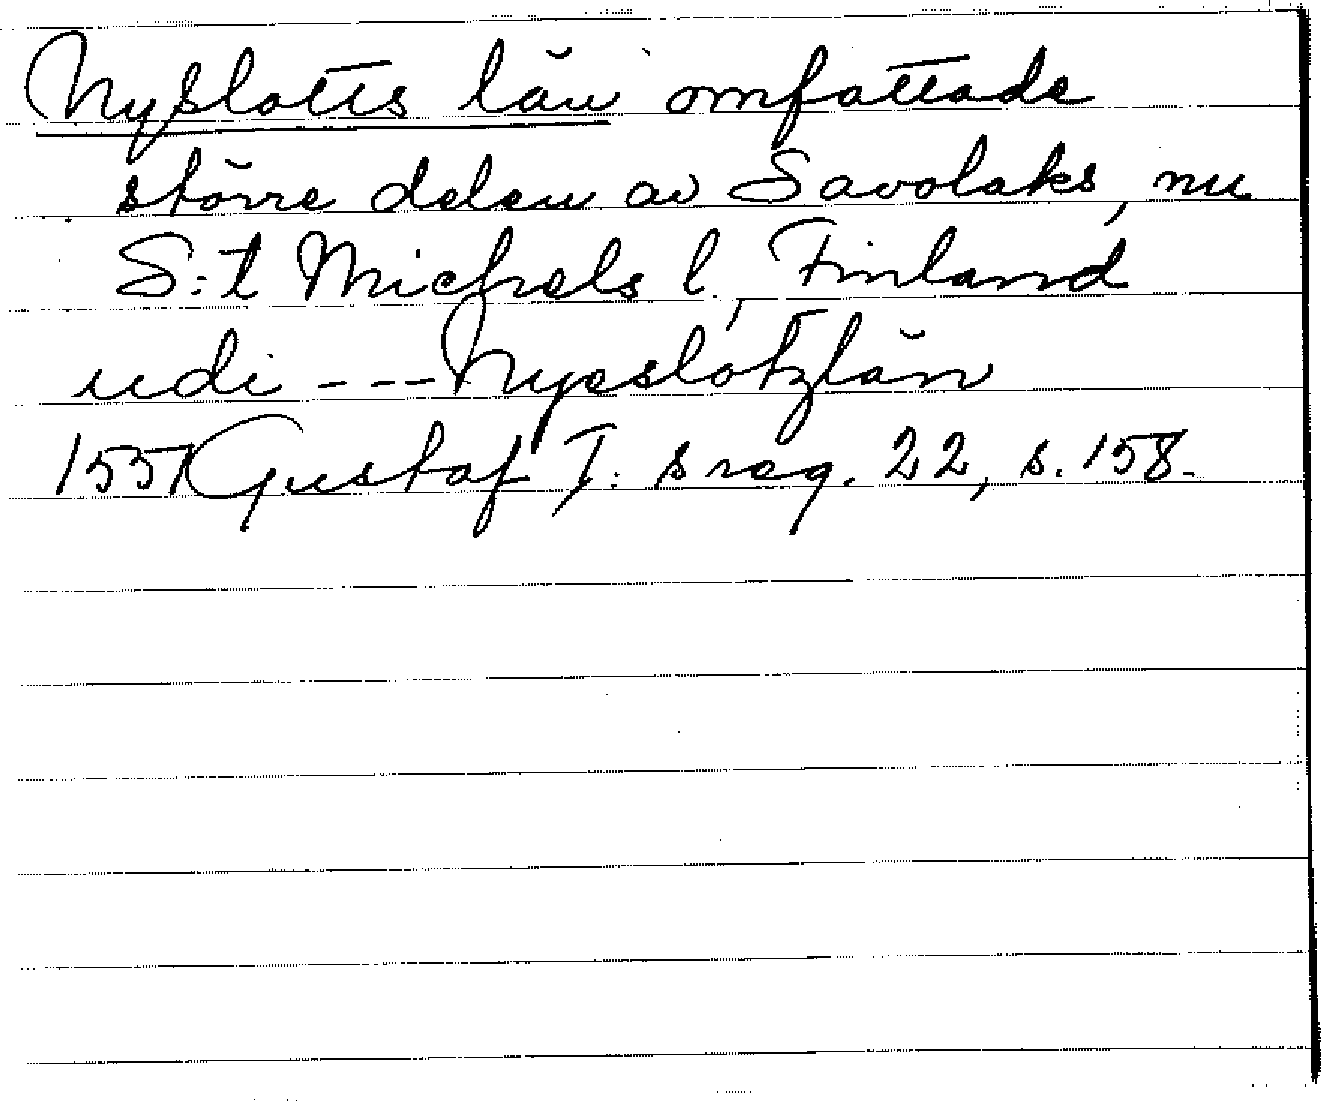 Nyslotts län omfattade
större delen av Savolaks, nu
S:t Michels l., Finland
udi --- Nyeslotzlän
1551 Gustaf I: s reg. 22, s. 158.